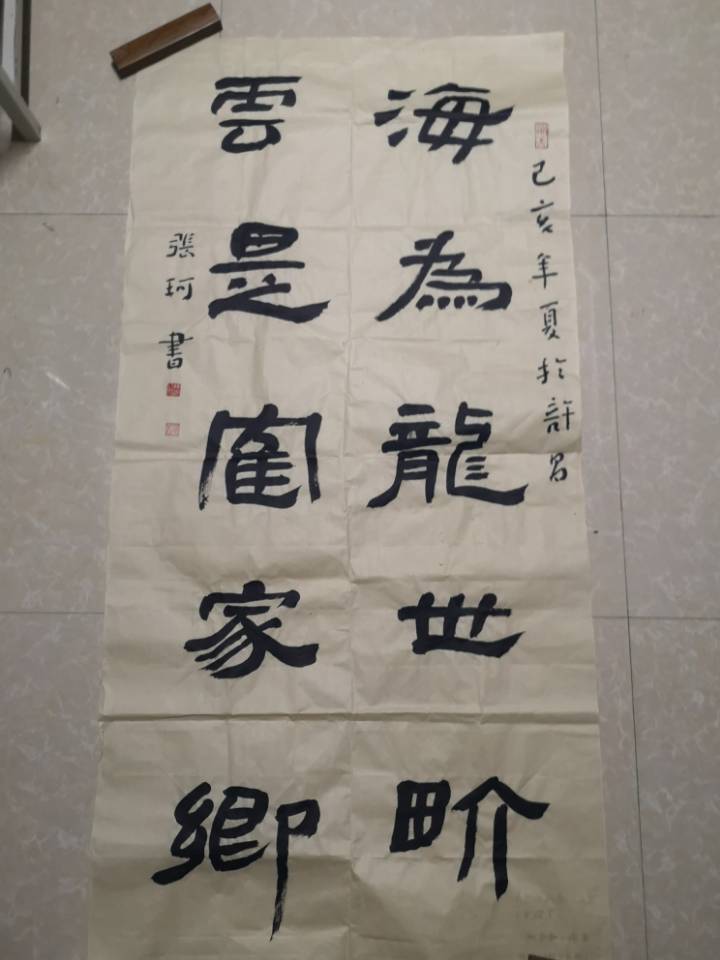 己亥年夏於許昌
海為龍世畍
雲是隺家鄉
張珂書